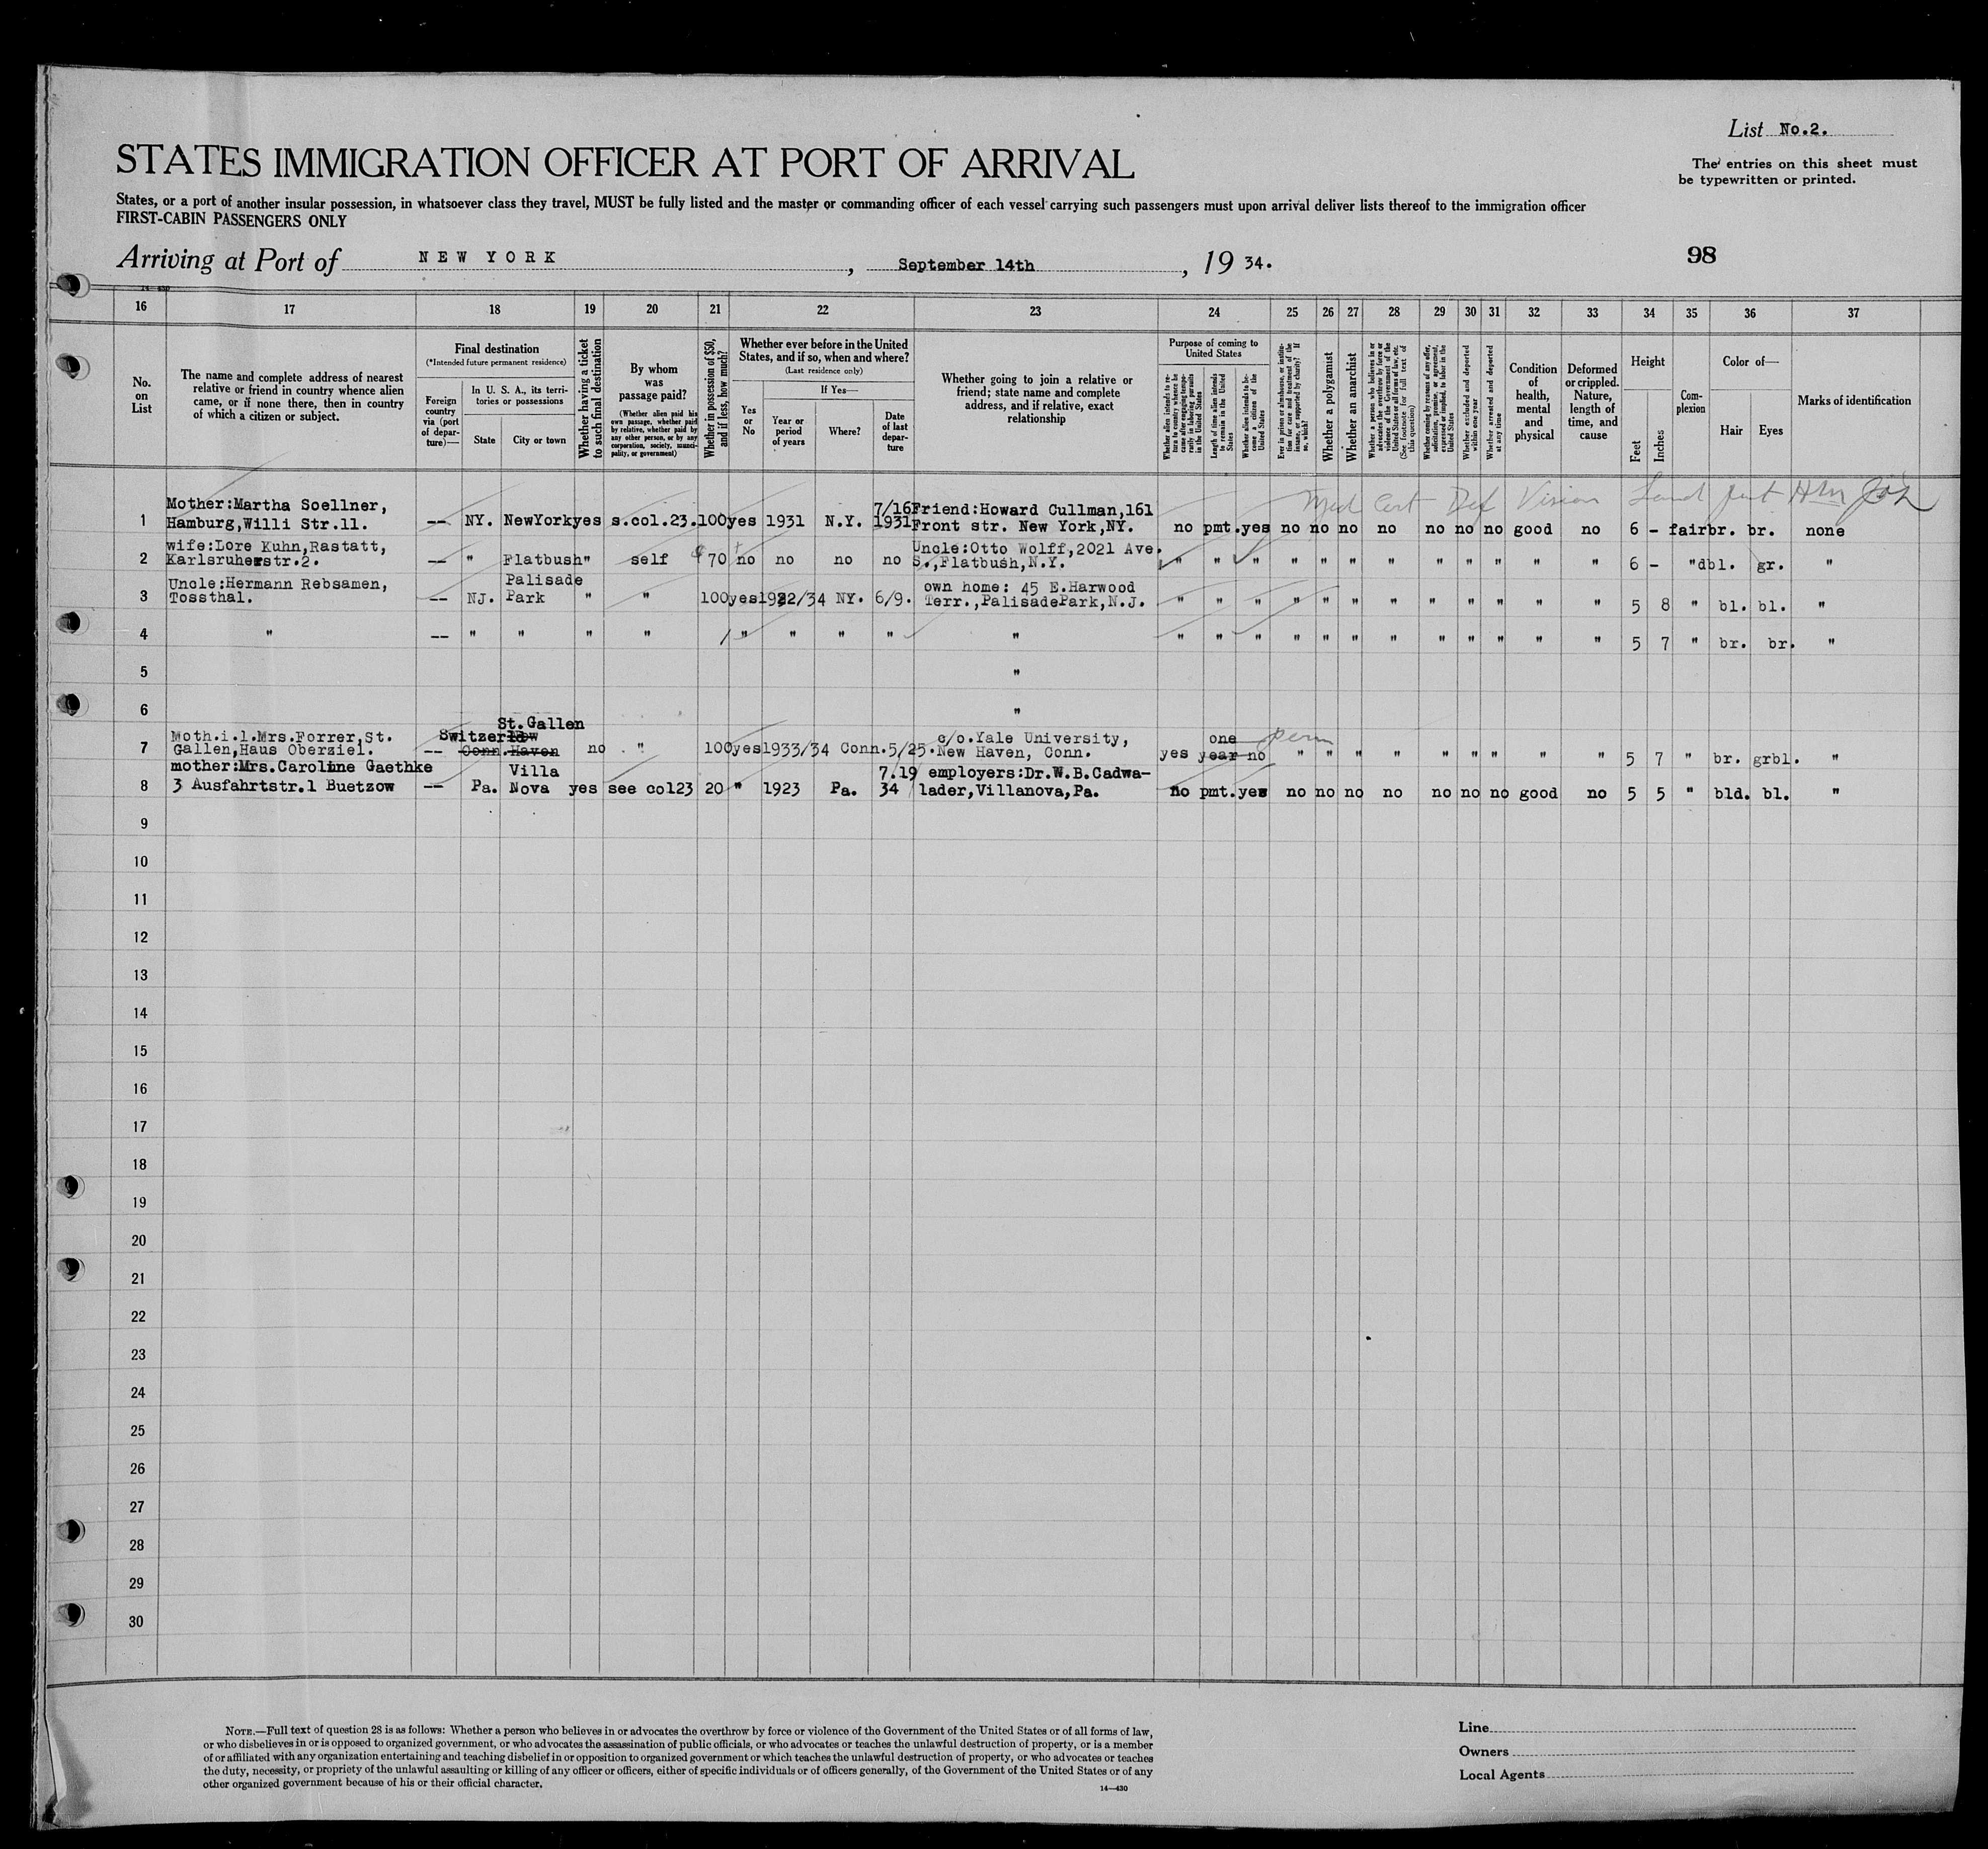 List No.2.
STATES IMMIGRATION OFFICER AT PORT OF ARRIVAL
The entries on this sheet must
be typewritten or printed.
States, or a port of another insular possession, in whatsoever class they travel, MUST be fully listed and the master or commanding officer of each vessel carrying such passengers must upon arrival deliver lists thereof to the immigration officer
FIRST-CABIN PASSENGERS ONLY
Arriving at Port of NEW YORK, September 14th, 19 34.
98
16 17 18 19 20 21 22 23 24 25 26 27 28 29 30 31 32 33 34 35 36 37
No. on List
The name and complete address of nearest relative or friend in country whence alien came, or if none there, then in country of which a citizen or subject.
Final destination
(*Intended future permanent residence)
Foreign country via (port of departure)—
In U. S. A., its territories or possessions
State
City or town
Whether having a ticket to such final destination
By whom was passage paid?
(Whether alien paid his own passage, whether paid by relative, whether paid by any other person, or by any corporation, society, municipality, or government)
Whether in possession of $50, and if less, how much?
Whether ever before in the United States, and if so, when and where?
(Last residence only)
Yes or No
If Yes—
Year or period of years
Where?
Date of last departure
Whether going to join a relative or friend; state name and complete address, and if relative, exact relationship
Purpose of coming to United States
Whether alien intends to return to country whence he came after engaging temporarily in laboring pursuits in the United States
Length of time alien intends to remain in the United States
Whether alien intends to become a citizen of the United States
Ever in prison or almshouse, or institution for care and treatment of the insane, or supported by charity? If so, which?
Whether a polygamist
Whether an anarchist
Whether a person who believes in or advocates the overthrow by force or violence of the Government of the United States or all forms of law, etc. (See footnote for full text of this question)
Whether coming by reasons of any offer, solicitation, promise, or agreement, expressed or implied, to labor in the United States
Whether excluded and deported within one year
Whether arrested and deported at any time
Condition of health, mental and physical
Deformed or crippled. Nature, length of time, and cause
Height
Feet
Inches
Complexion
Color of—
Hair
Eyes
Marks of identification
Med Cert Def Vision
Mother:Martha Soellner, 7/16 Friend:Howard Cullman,161
1 Hamburg,Willi Str.11. -- NY. NewYork yes s.col.23. 100 yes 1931 N.Y. 1931 Front str. New York,NY. no pmt. yes no no no no no no no good no 6 - fair br. br. none
wife:Lore Kuhn,Rastatt, Uncle:Otto Wolff,2021 Ave.
2 Karlsruherstr.2. -- " Flatbush " self $70 no no no no S.,Flatbush,N.Y. " " " " " " " " " " " " 6 - " dbl. gr. "
Uncle:Hermann Rebsamen, Palisade own home: 45 E.Harwood
3 Tossthal. -- NJ. Park " " 100 yes 1922/34 NY. 6/9. Terr.,PalisadePark,N.J. " " " " " " " " " " " " 5 8 " bl. bl. "
4 " -- " " " " " " " " " " " " " " " " " " " " " 5 7 " br. br. "
5 "
6 "
St.Gallen
Moth.i.l.Mrs.Forrer,St. Switzerld New c/o.Yale University, one perm
7 Gallen,Haus Oberziel. -- Conn. Haven no " 100 yes 1933/34 Conn. 5/25. New Haven, Conn. yes year no " " " " " " " " " 5 7 " br. grbl. "
mother:Mrs.Caroline Gaethke Villa 7.19 employers:Dr.W.B.Cadwa-
8 3 Ausfahrtstr.1 Buetzow -- Pa. Nova yes see col23 20 " 1923 Pa. 34 lader,Villanova,Pa. no pmt. yes no no no no no no no good no 5 5 " bld. bl. "
9
10
11
12
13
14
15
16
17
18
19
20
21
22
23
24
25
26
27
28
29
30
NOTE.—Full text of question 28 is as follows: Whether a person who believes in or advocates the overthrow by force or violence of the Government of the United States or of all forms of law,
or who disbelieves in or is opposed to organized government, or who advocates the assassination of public officials, or who advocates or teaches the unlawful destruction of property, or is a member
of or affiliated with any organization entertaining and teaching disbelief in or opposition to organized government or which teaches the unlawful destruction of property, or who advocates or teaches
the duty, necessity, or propriety of the unlawful assaulting or killing of any officer or officers, either of specific individuals or of officers generally, of the Government of the United States or of any
other organized government because of his or their official character.
14—430
Line
Owners
Local Agents